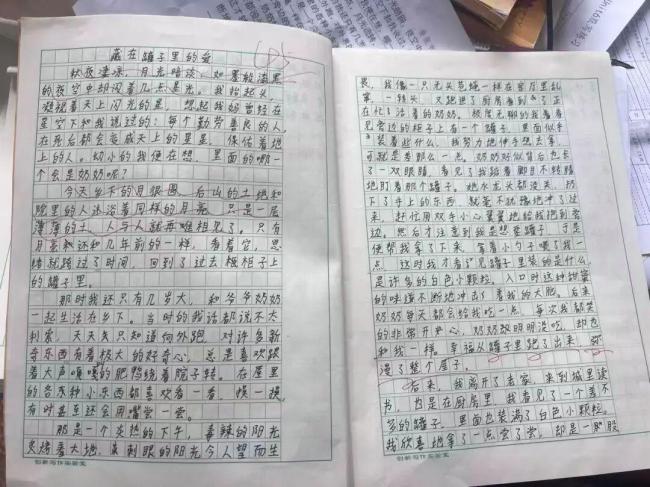 藏在罐子里的爱
秋夜凄凉，月光暗淡，如墨般漆黑
的夜空中胡闪着几点星光。我抬起头，
凝视着天上闪光的星，想起我奶曾经在
星空下和我说过的：每个勤劳善良的人，
在死后都会变成天上的星星，保佑着地
上的人。幼小的我便在想，里面的哪一
个会是奶奶呢？
今天乡下的月很圆，后山的土地和
院里的人沐浴着同样的月亮，只是一层
薄薄的土，人与人就再难相见了。只有
月亮和还和几年前的一样，看着它，思
绪就跨过了时间，回到了过去柜子上
的罐子里。
那时我还只有几岁大，和爷爷奶奶
一起生活在乡下。当时的我话都说不大
利索，天天就只知道向外跑，对许多新
奇东西有着极大的好奇心，总是喜欢跟
着大声嘎嘎的肥鸭绕着院子转。在屋里
的各种小东西都喜欢看一看，摸一摸，
有时甚至还会用嘴尝一尝。
那是一个炎热的下午，毒辣的阳光
炙烤着大地，刺眼的阳光令人望而生
创新写作实验室
畏，我像一只无头苍蝇一样在客厅里乱
窜，一转头，又跑进了厨房看到了正
在忙活着的奶奶。极度无聊的我看看
见旁边的柜子上有一个罐子，里面似乎
装着些什么，我努力地伸手想去拿，
可就是差那么一点。奶奶好似背后也长了
一双眼睛，看见了我踮着脚目不转睛
地盯着那个罐子。她水龙头都没关，扔
下了手上的东西，就毫不犹豫地冲了过
来，赶忙用双手小心翼翼地给我抱到旁
边，然后才注意到我是想要罐子，于是
便帮我拿了下来，拿着小勺子喂了我一
点，这时我才看见罐子里装的是什么，
是许多的白色小颗粒，入口时这种甜蜜
的味道不断地冲击了着我的大脑。后来
奶奶每天都会给我吃一点，每次我都笑
的非常开心，奶奶改明明没吃，却也
和我一样。幸福从罐子里跑了出来，弥
漫了整个屋子。
后来，我离开了老家，来到城里读
书，也是在厨房里，我看见了一个差不
多的罐子，里面也装满了白色小颗粒。
我欣喜地拿了一点尝了尝，却是一股股